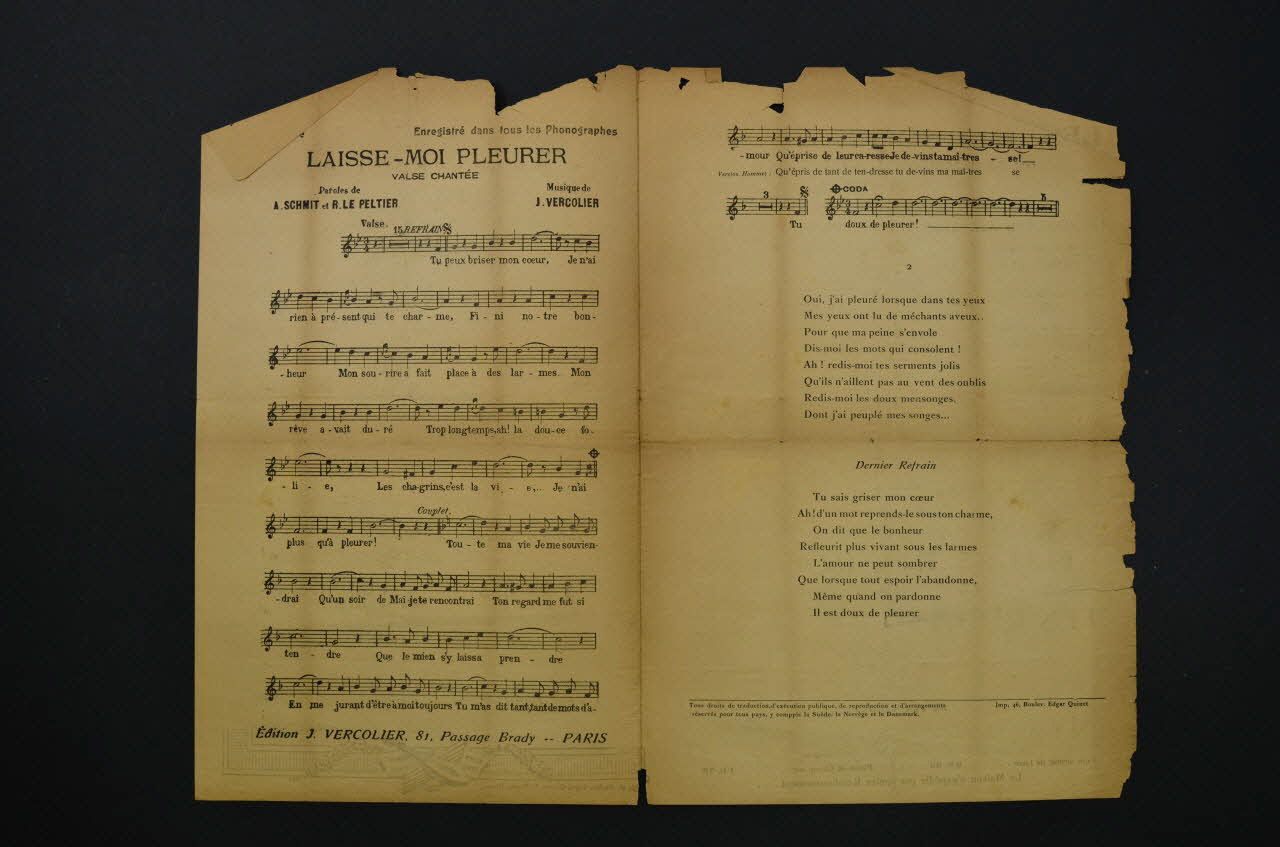 Enregistré dans tous les Phonographes
LAISSE-MOI PLEURER
VALSE CHANTÉE
Paroles de
A. SCHMIT et R. LE PELTIER
Musique de
J. VERCOLIER
Valse.
15 REFRAIN
Tu peux briser mon cœur, Je n'ai
rien à pré-sent qui te char-me, Fi-ni no-tre bon-
-heur Mon sou-rire a fait place à des lar-mes. Mon
rêve a-vait du-ré Trop longtemps, ah! la dou-ce fo-
-li-e, Les cha-grins, c'est la vi-e,.. Je n'ai
Couplet.
plus qu'à pleurer! Tou-te ma vie Je me souvien-
-drai Qu'un soir de Mai je te rencontrai Ton regard me fut si
ten-dre Que le mien s'y laissa pren-dre
En me jurant d'être à moi toujours Tu m'as dit tant, tant de mots d'a-
Édition J. VERCOLIER, 81, Passage Brady -- PARIS
-mour Qu'éprise de leur ca-resse Je de-vins ta maî-tres-se!
Version Hommes: Qu'épris de tant de ten-dresse tu de-vins ma maî-tres se
3
CODA
5
Tu doux de pleurer!
2
Oui, j'ai pleuré lorsque dans tes yeux
Mes yeux ont lu de méchants aveux..
Pour que ma peine s'envole
Dis-moi les mots qui consolent !
Ah ! redis-moi tes serments jolis
Qu'ils n'aillent pas au vent des oublis
Redis-moi les doux mensonges.
Dont j'ai peuplé mes songes...
Dernier Refrain
Tu sais griser mon cœur
Ah! d'un mot reprends-le sous ton charme,
On dit que le bonheur
Refleurit plus vivant sous les larmes
L'amour ne peut sombrer
Que lorsque tout espoir l'abandonne,
Même quand on pardonne
Il est doux de pleurer
Tous droits de traduction, d'exécution publique, de reproduction et d'arrangements
réservés pour tous pays, y compris la Suède, la Norvège et le Danemark.
Imp. 46, Boulev. Edgar Quinet